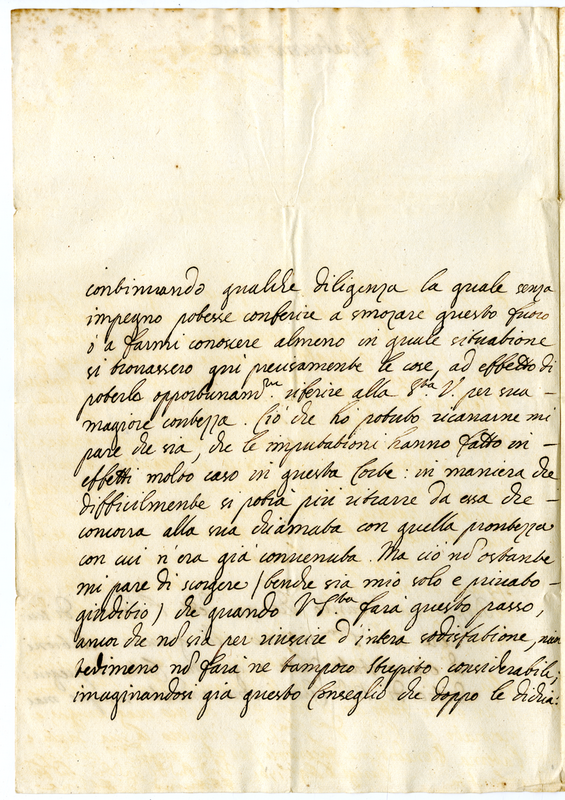 continuando qualche diligenza la quale senza
impegno potesse conferire a smozare questo fuoco
ò a farmi conoscere almeno in quale situatione
si trovassero quì precisamente le cose, ad effetto di
poterlo opportunam.te riferire alla S.tà V. per sua
magiore contezza. Ciò che hò potuto ricavarne mi
pare che sia, che le imputationi hanno fatto in
effetti molto caso in questa Corte: in maniera che
difficilmente si potrà più ritrarre da essa che
concorra alla sua chiamata con quella prontezza
con cui n'era già convenuta. Ma ciò nō ostante
mi pare di scorgere (benche sia mio solo e privato
giuditio) che quando V. S.tà farà questo passo,
ancor che nō sia per riuscire d'intera sodisfatione, nien
tedimeno nō farà ne tampoco strepito considerabile;
imaginandosi già questo Conseglio che doppo le dichia: